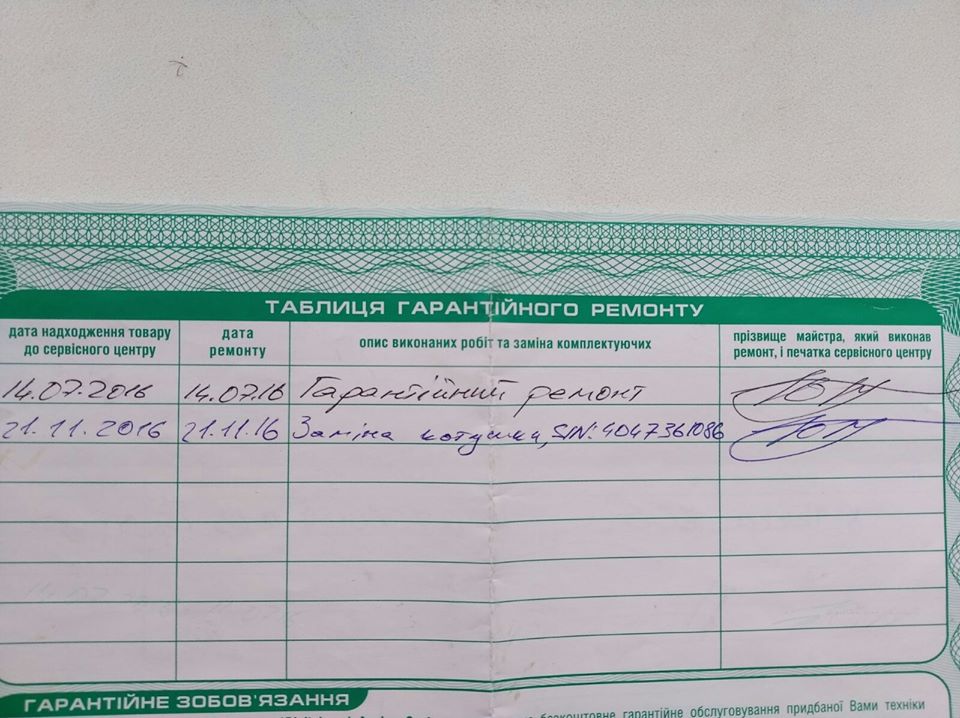 ТАБЛИЦЯ ГАРАНТІЙНОГО РЕМОНТУ
дата надходження товару до сервісного центру
дата ремонту
опис виконаних робіт та заміна комплектуючих
прізвище майстра, який виконав ремонт, і печатка сервісного центру
14.07.2016 14.07.16 Гарантійний ремонт
21.11.2016 21.11.16 Заміна котушка, S/N: 4047361086
ГАРАНТІЙНЕ ЗОБОВ'ЯЗАННЯ
безкоштовне гарантійне обслуговування придбаної Вами техніки